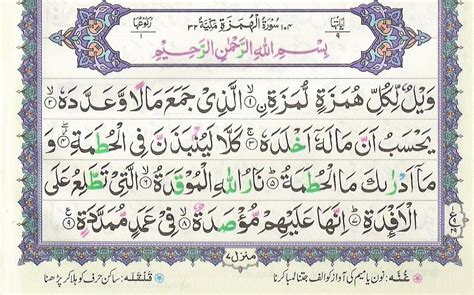 اٰیَاتُهَا ٩
١٠٤ سُوْرَةُ الْهُمَزَةِ مَكِّيَّةٌ ٣٢
رُكُوْعُهَا ١
بِسْمِ اللهِ الرَّحْمٰنِ الرَّحِيْمِ
وَيْلٌ لِّكُلِّ هُمَزَةٍ لُّمَزَةِ ۙ﴿١﴾ ۨالَّذِيْ جَمَعَ مَالًا وَّعَدَّدَهٗ ۙ﴿٢﴾
يَحْسَبُ اَنَّ مَالَهٗۤ اَخْلَدَهٗ ۚ﴿٣﴾ كَلَّا لَيُنْۢبَذَنَّ فِي الْحُطَمَةِ ۖ﴿٤﴾ وَ
مَاۤ اَدْرٰىكَ مَا الْحُطَمَةُ ؕ﴿٥﴾ نَارُ اللهِ الْمُوْقَدَةُ ۙ﴿٦﴾ الَّتِيْ تَطَّلِعُ عَلَى
الْاَفْـِٕدَةِ ؕ﴿٧﴾ اِنَّهَا عَلَيْهِمْ مُّؤْصَدَةٌ ۙ﴿٨﴾ فِيْ عَمَدٍ مُّمَدَّدَةٍ ﴿٩﴾
منزل ٧
غُنَّه: نون یا میم کی آواز کو الف جتنا لمبا کرنا
قَلْقَلَه: ساکن حرف کو ہلا کر پڑھنا